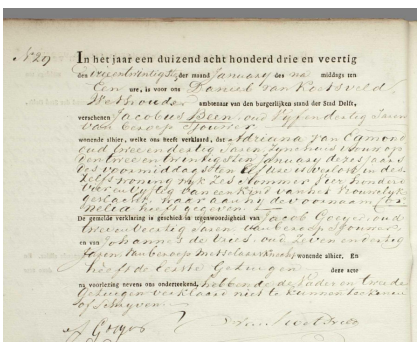 No 29
In het jaar een duizend acht honderd drie en veertig
den vier en twintigsten der maand January des na middags ten
Een ure, is voor ons Daniel van Koetsveld
Wethouder ambtenaar van den burgerlijken stand der Stad Delft,
verschenen Jacobus Been, oud vijf en dertig Jaren
van beroep Sjouwer
wonende alhier, welke ons heeft verklaard, dat Adriana van Egmond
oud twee en dertig Jaren, zyne huisvrouw op
den twee en twintigsten January dezes jaars
des voormiddags ten elf ure is bevallen in des
zelfs woning wyk zes nommer vier honderd
vier en vyftig van een kind van het vrouwelyk
geslacht, waar aan hy de voornaam
nelia heeft gegeven
De gemelde verklaring is geschied in tegenwoordigheid van Jacob oud
twee en veertig Jaren van beroep Sjouwer
en van Johannes de Vries, oud zeven en veertig
Jaren van beroep Metselaars knecht, wonende alhier. En
heeft de Eerste Getuigen deze acte
na voorlezing nevens ons onderteekend, hebbende de Vader en tweede
Getuigen verklaard niet te kunnen teekenen
of Schryven